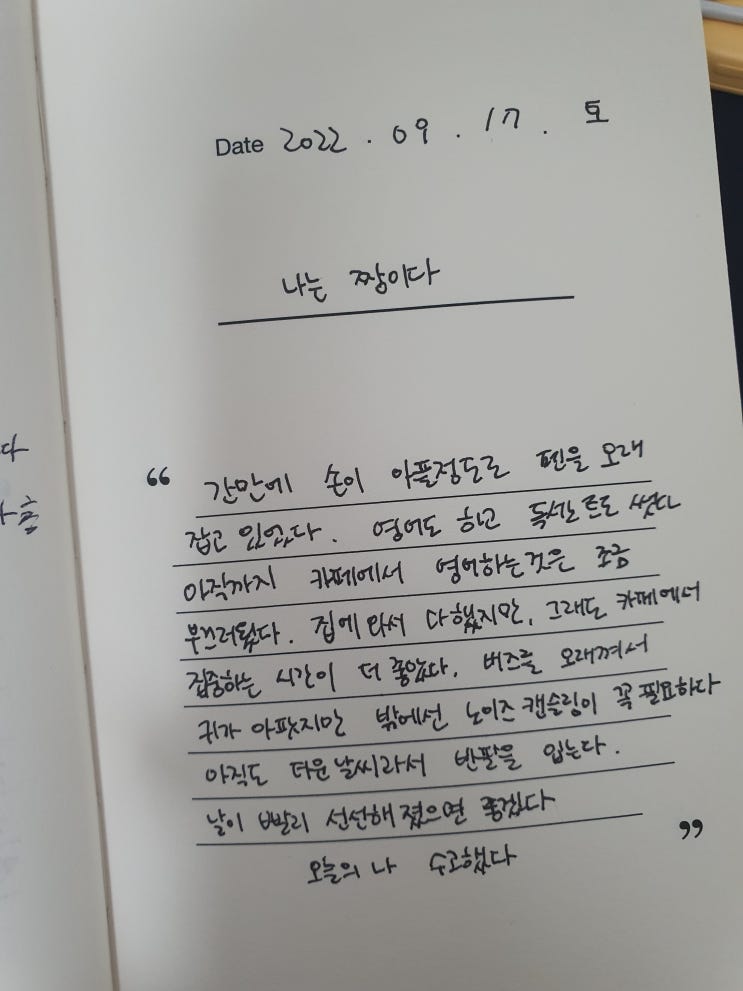 Date 2022 . 09 . 17 . 토
나는 짱이다
“ 간만에 손이 아플정도로 펜을 오래
잡고 있었다. 영어도 하고 독서노트도 썼다
아직까지 카페에서 영어하는것은 조금
부끄러웠다. 집에 와서 다했지만, 그래도 카페에서
집중하는 시간이 더 좋았다. 버즈를 오래껴서
귀가 아팠지만 밖에선 노이즈 캔슬링이 꼭 필요하다
아직도 더운 날씨라서 반팔을 입는다.
날이 빨리 선선해 졌으면 좋겠다
오늘의 나 수고했다 ”
다